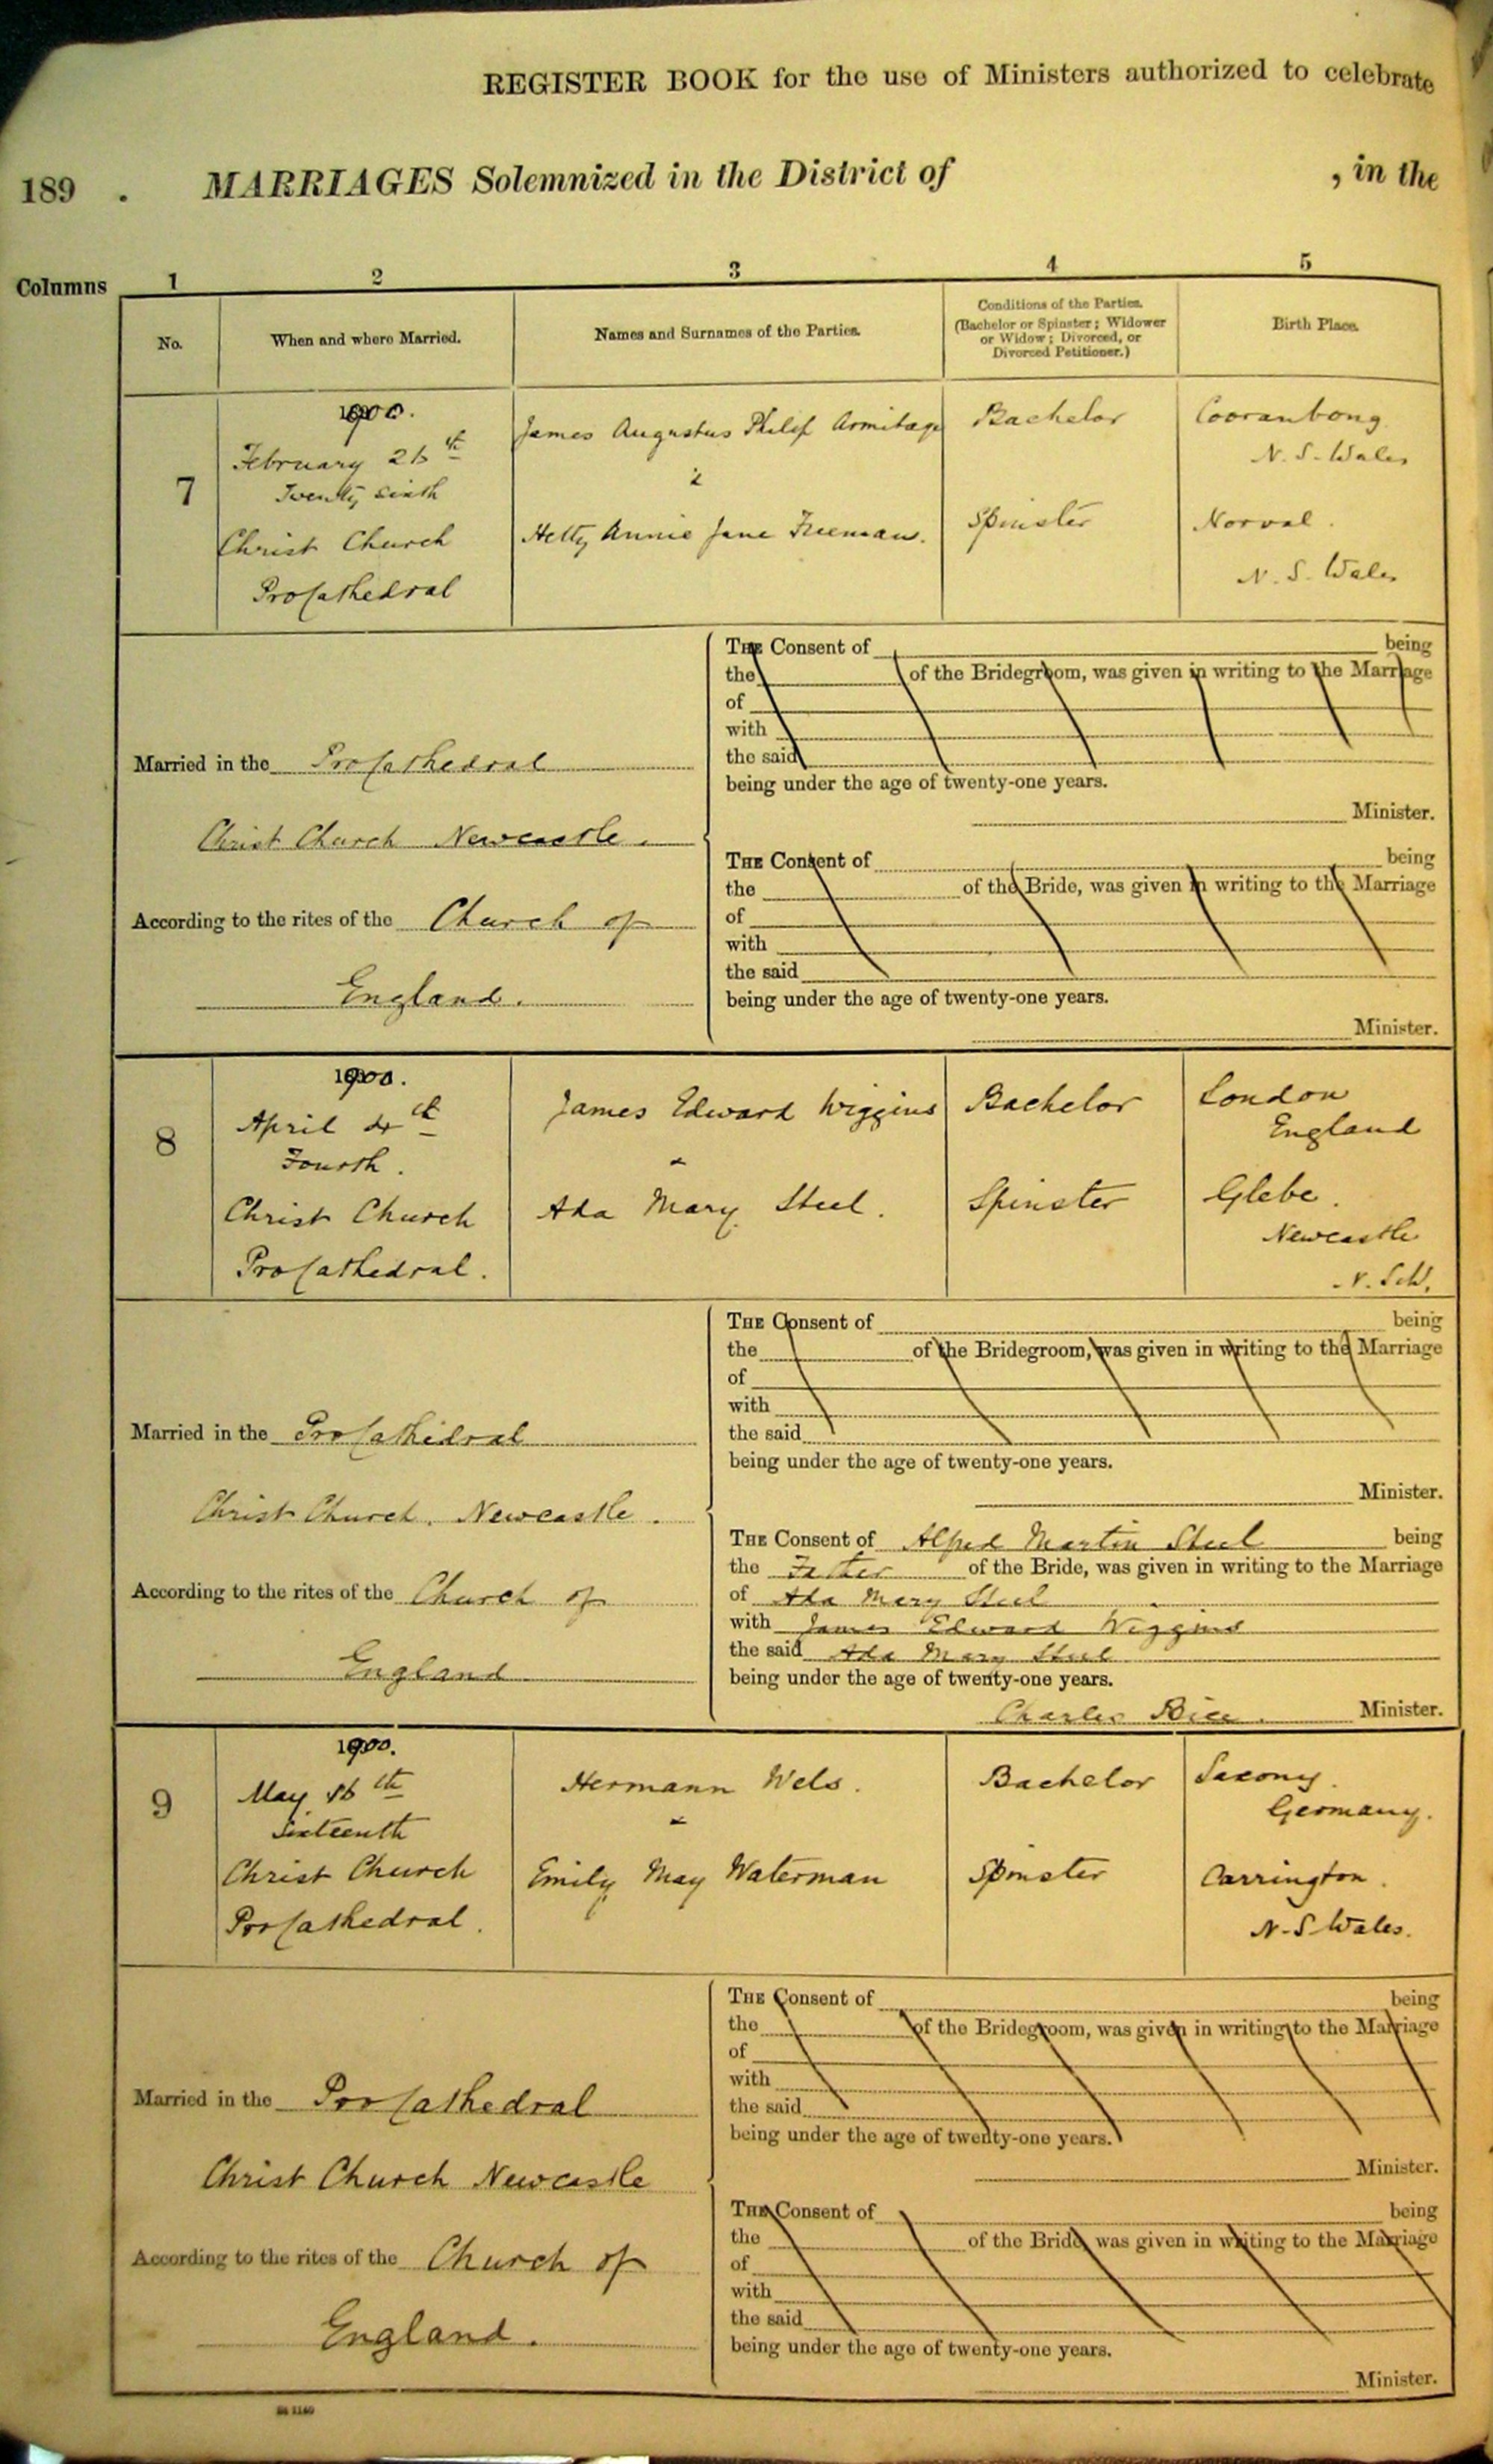 REGISTER BOOK for the use of Ministers authorized to celebrate
189 . MARRIAGES Solemnized in the District of , in the
Columns 1 2 3 4 5
No. When and where Married. Names and Surnames of the Parties. Conditions of the Parties. (Bachelor or Spinster; Widower or Widow; Divorced, or Divorced Petitioner.) Birth Place.
1900.
James Augustus Philip Armitage Bachelor Cooranbong
February 26th N. S. Wales
7 Twenty sixth
Christ Church Hetty Annie Jane Freeman. Spinster Norval.
ProCathedral N. S. Wales
THE Consent of being
the of the Bridegroom, was given in writing to the Marriage
of
with
Married in the ProCathedral the said
being under the age of twenty-one years.
Minister.
Christ Church Newcastle.
THE Consent of being
the of the Bride, was given in writing to the Marriage
According to the rites of the Church of of
with
the said
England. being under the age of twenty-one years.
Minister.
1900.
8 April 4th James Edward Wiggins Bachelor London
England
Fourth.
Christ Church Ada Mary Steel. Spinster Glebe.
Newcastle
ProCathedral. N. S. W.
THE Consent of being
the of the Bridegroom, was given in writing to the Marriage
of
with
Married in the ProCathedral the said
being under the age of twenty-one years.
Minister.
Christ Church. Newcastle.
THE Consent of Alfred Martin Steel being
the Father of the Bride, was given in writing to the Marriage
According to the rites of the Church of of Ada Mary Steel
with James Edward Wiggins
the said Ada Mary Steel
England being under the age of twenty-one years.
Charles Bice. Minister.
1900.
9 May 16th Hermann Wels. Bachelor Saxony.
Germany.
Sixteenth
Christ Church Emily May Waterman Spinster Carrington.
ProCathedral. N. S Wales.
THE Consent of being
the of the Bridegroom, was given in writing to the Marriage
of
with
Married in the ProCathedral the said
being under the age of twenty-one years.
Minister.
Christ Church Newcastle
THE Consent of being
the of the Bride, was given in writing to the Marriage
According to the rites of the Church of of
with
the said
England. being under the age of twenty-one years.
Minister.